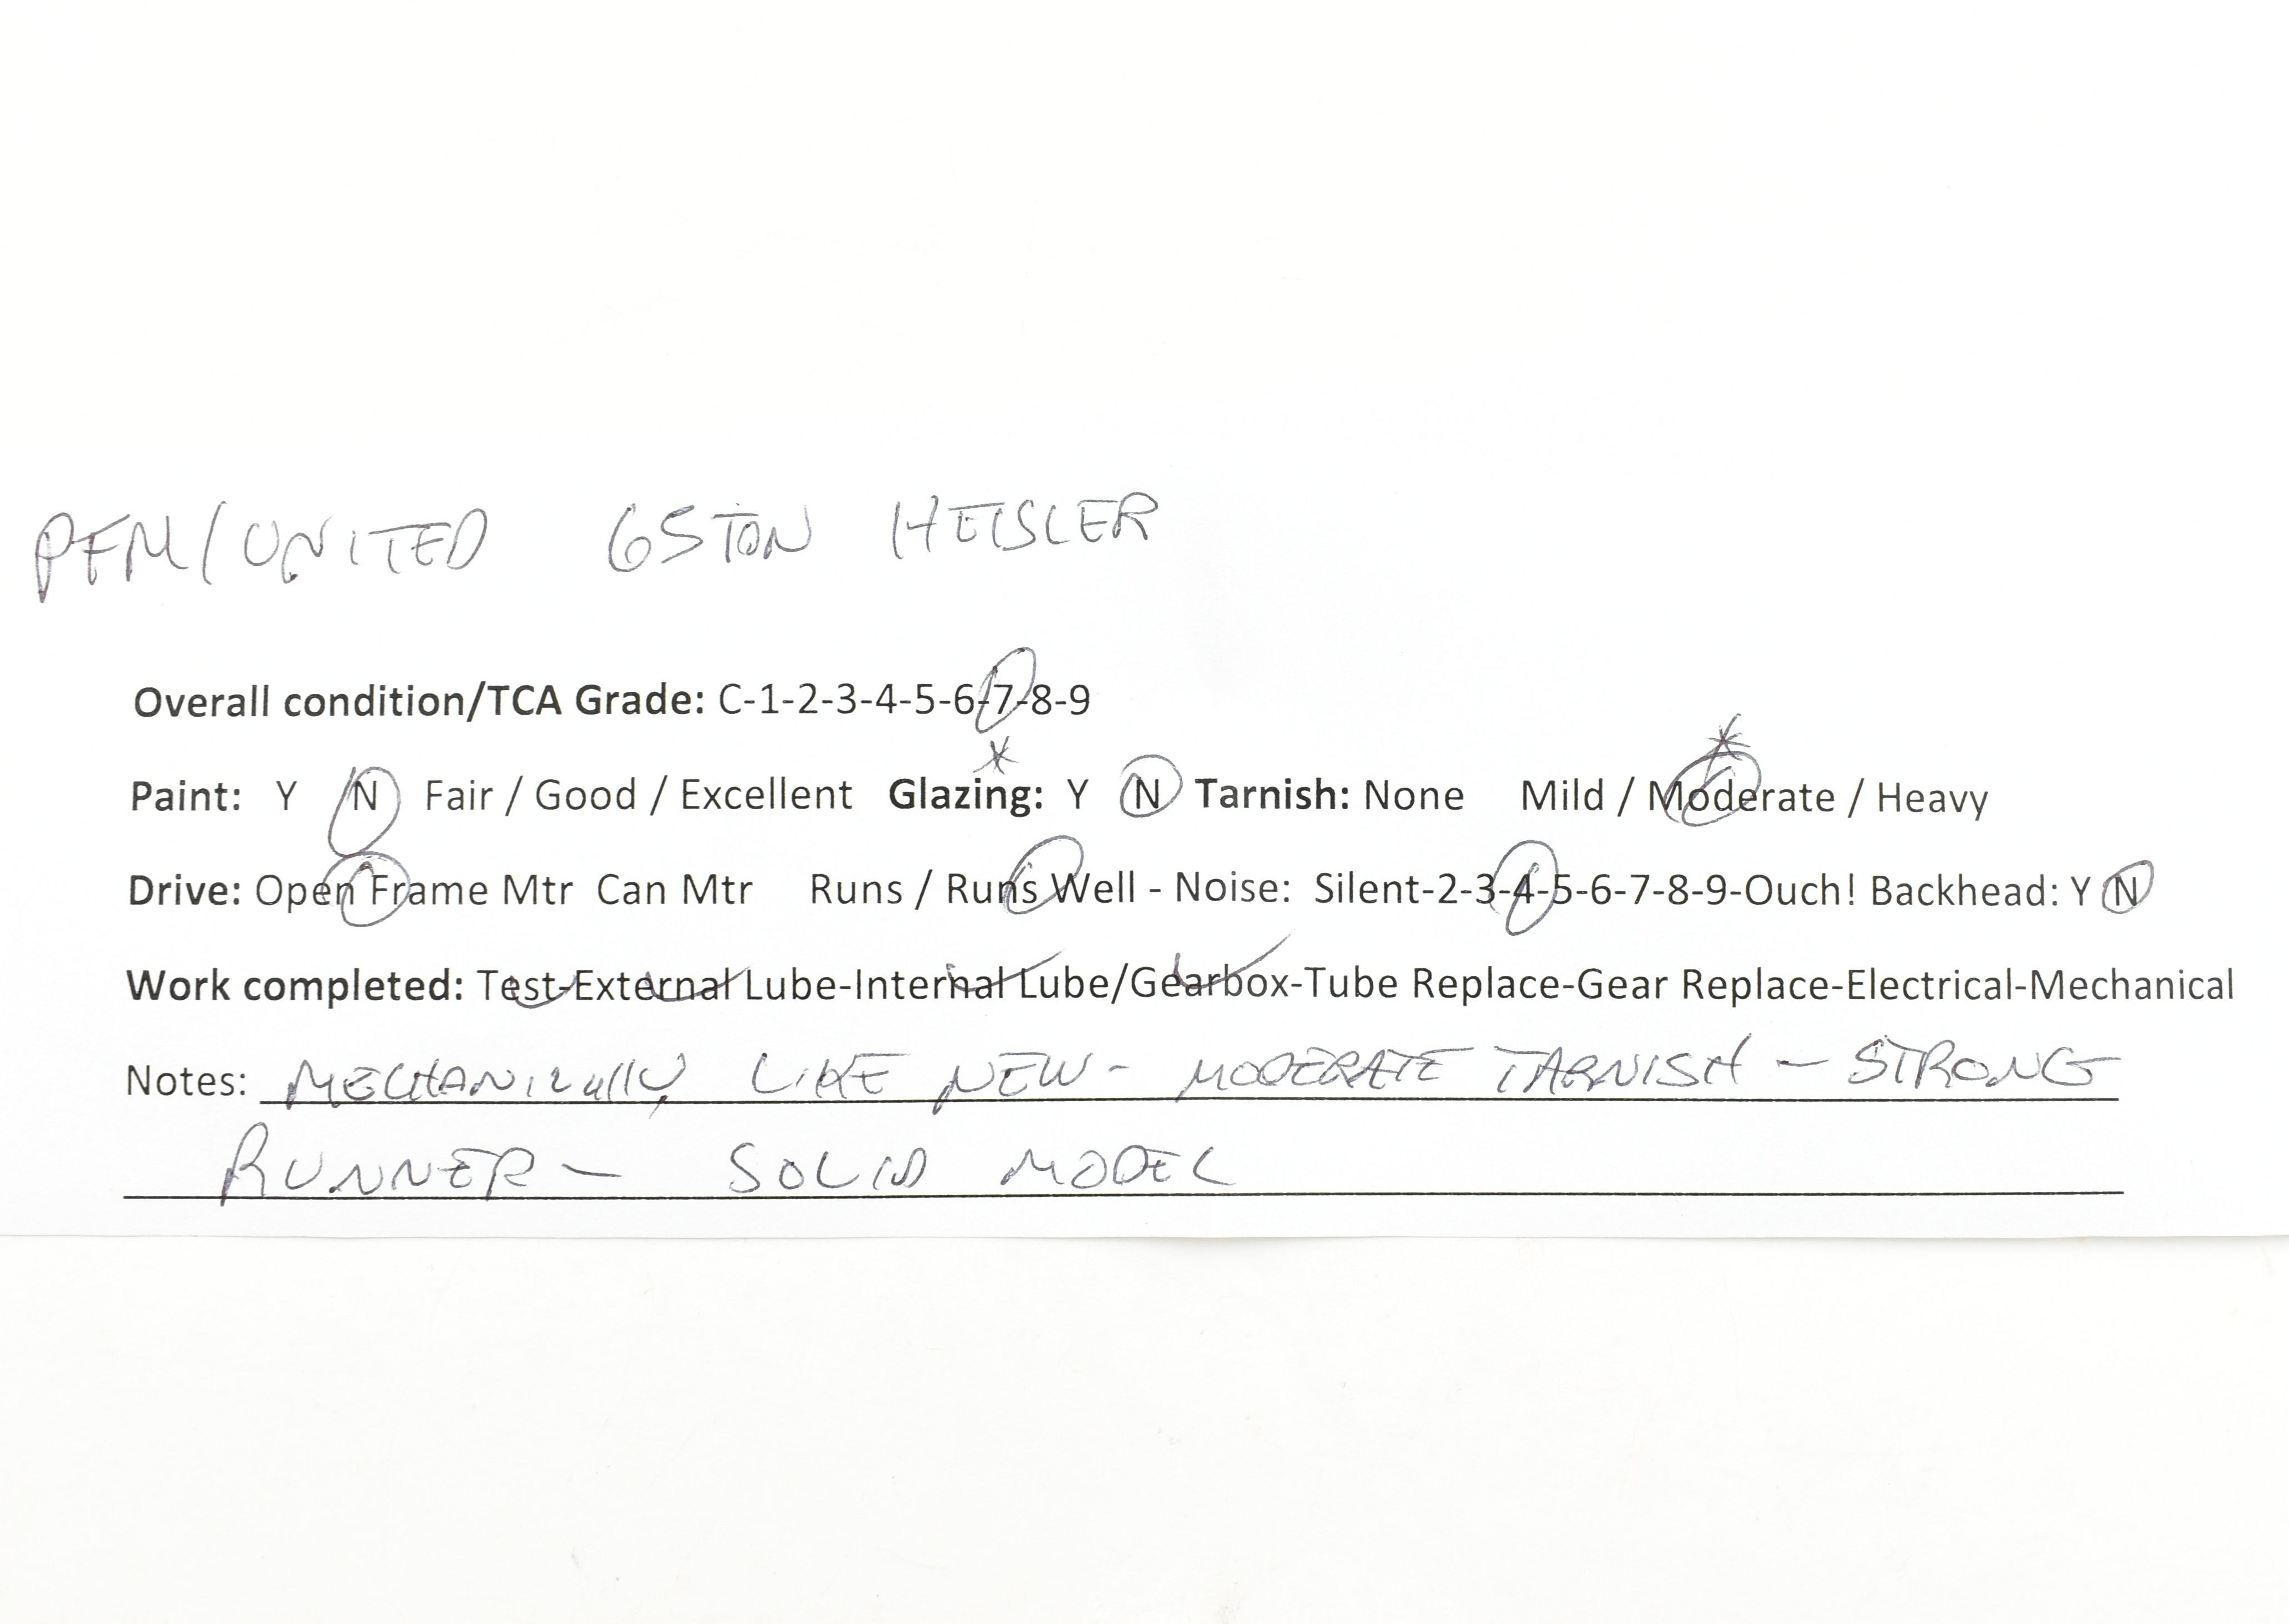 PFM/UNITED 65 TON HEISLER
Overall condition/TCA Grade: C-1-2-3-4-5-6-7-8-9
*
*
Paint: Y N Fair / Good / Excellent Glazing: Y N Tarnish: None Mild / Moderate / Heavy
Drive: Open Frame Mtr Can Mtr Runs / Runs Well - Noise: Silent-2-3-4-5-6-7-8-9-Ouch! Backhead: Y N
Work completed: Test-External Lube-Internal Lube/Gearbox-Tube Replace-Gear Replace-Electrical-Mechanical
Notes: MECHANICally LIKE NEW - MODERATE TARNISH - STRONG
RUNNER - SOLID MODEL